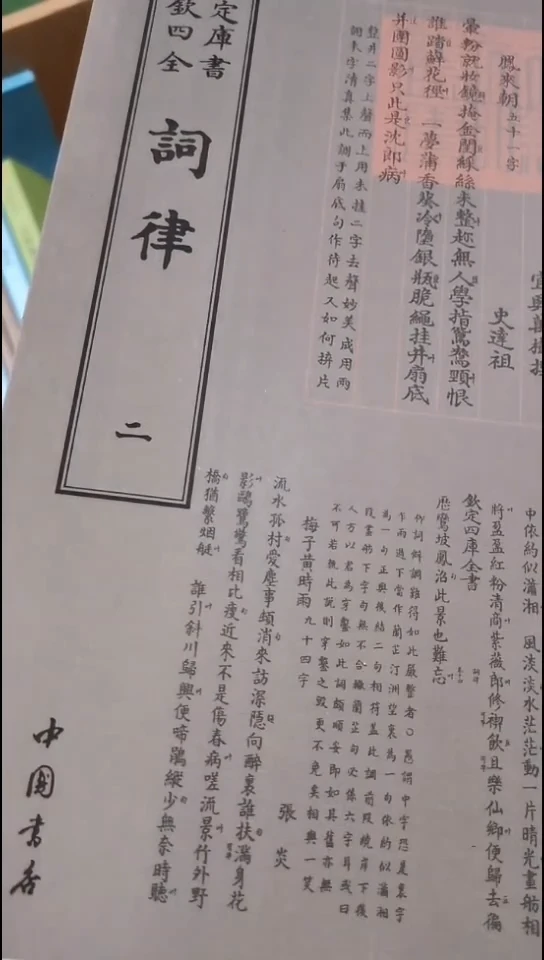 欽定四庫全書
詞律
二
中國書店
宜興萬樹撰
鳳來朝五十一字
史達祖
暈粉就妝鏡掩金閨綵絲未整趁無人學指鴛鴦頸恨
誰踏蘚花徑 一夢蒲香葵冷墮銀瓶脆繩挂井扇底
并團圓影只此是沈郎病
整井二字上聲而上用未挂二字去聲妙美成用兩
調末字清真集此調于扇底句作待起又如何拚片
中依約似瀟湘 風淡淡水茫茫動一片晴光畫舫相
將盈盈紅粉清商紫薇郎修禊飲且樂仙鄉便歸去徧
欽定四庫全書
歷鸞坡鳳沼此景也難忘
梅子黃時雨九十四字
張炎
流水孤村愛塵事頓消來訪深隱向醉裏誰扶滿身花
影鷗鷺驚看相比瘦近來不是傷春病嗟流景竹外野
橋猶繫烟艇 誰引斜川歸興便啼鵑縱少無奈時聽